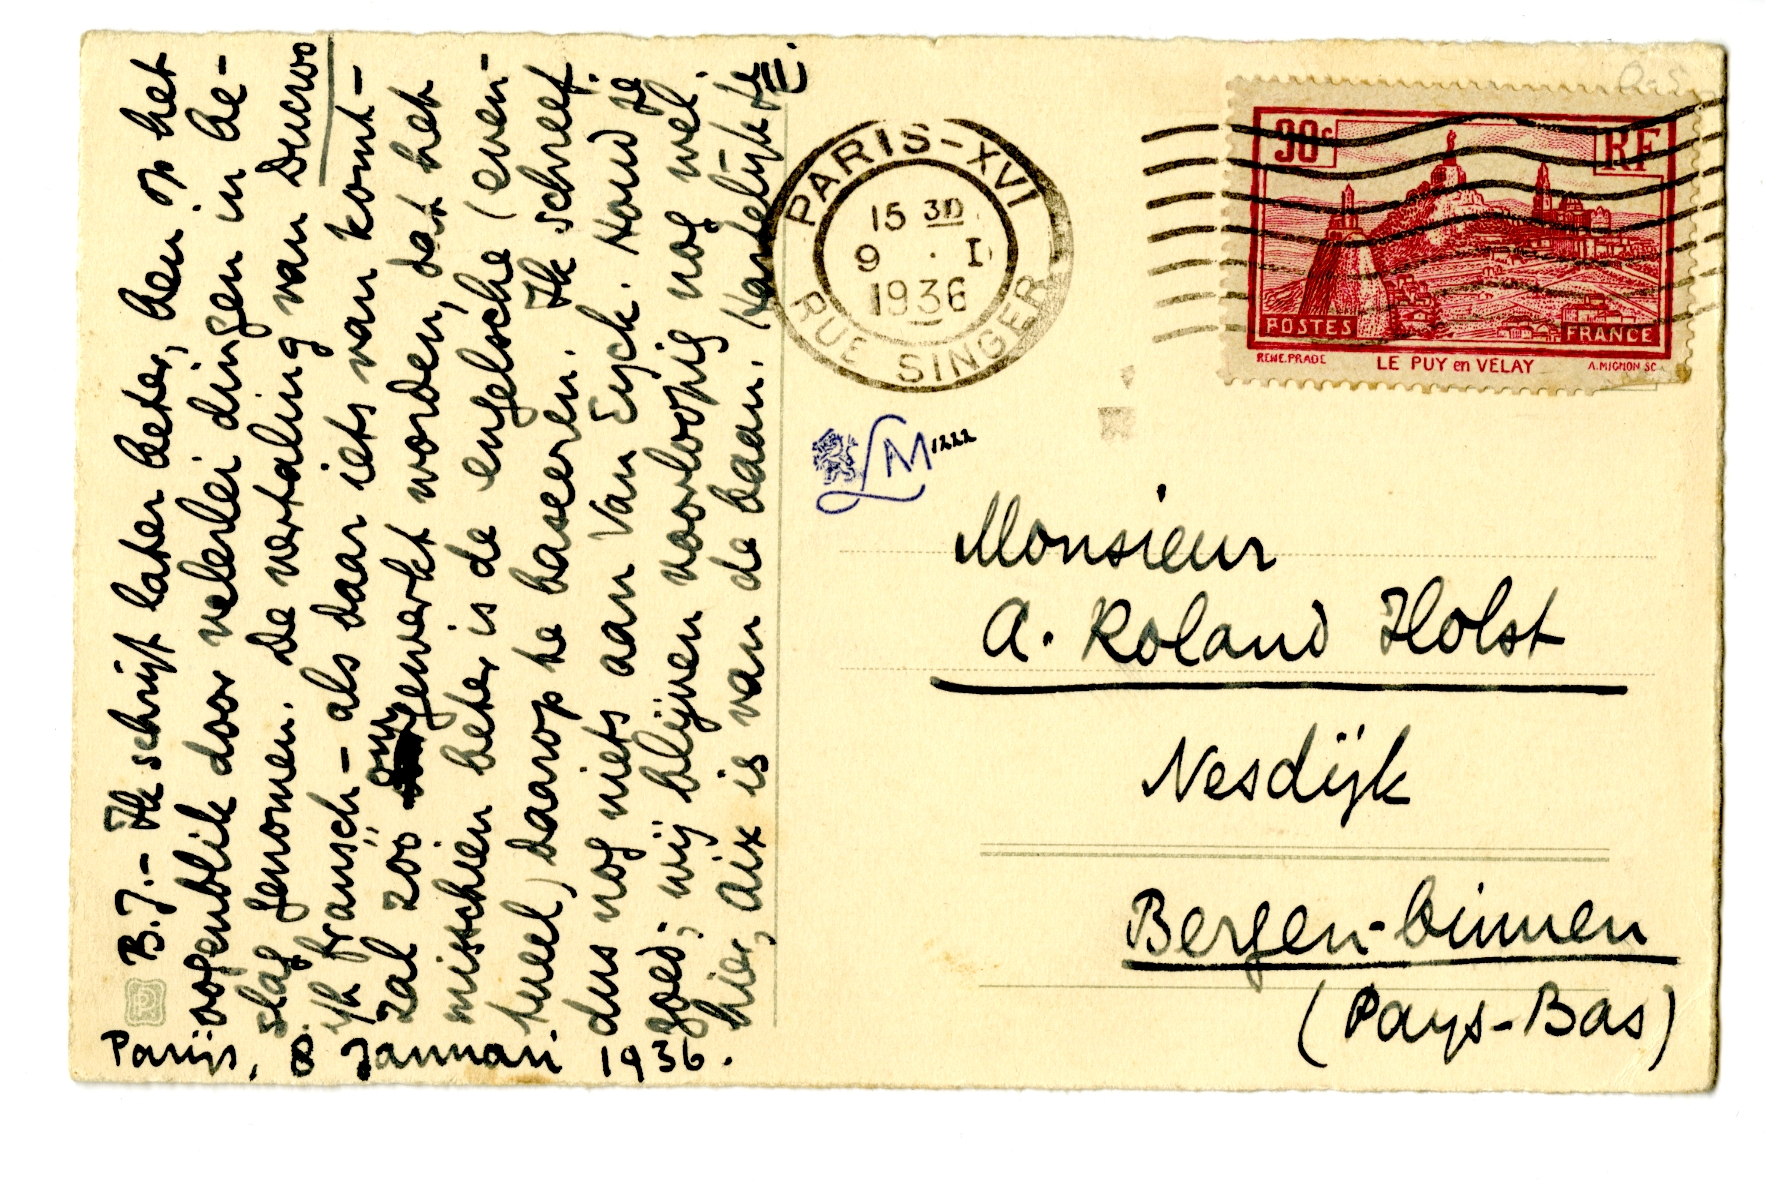 Parijs, 8 Januari 1936.
B.J.- Ik schrijf later beter, ben op het
oogenblik door velerlei dingen in be-
slag genomen. De vertaling van Ducroo
ijk fransch - als daar iets van komt -
zal zóó omgewerkt worden, dat het
misschien beter is de engelsche (even-
tueel) daarop te baseeren. Ik schreef
dus nog niets aan Van Eyck. Houd je
goed; wij blijven voorloopig nog wel
hier, Aix is van de baan. Hartelijk je
E.
PARIS-XVI
15 30
9 · I
1936
RUE SINGER
90c
RF
POSTES
FRANCE
RENE.PRADE
LE PUY en VELAY
A.MIGNON SC
LM 1222
Monsieur
A. Roland Holst
Nesdijk
Bergen-binnen
(Pays-Bas)